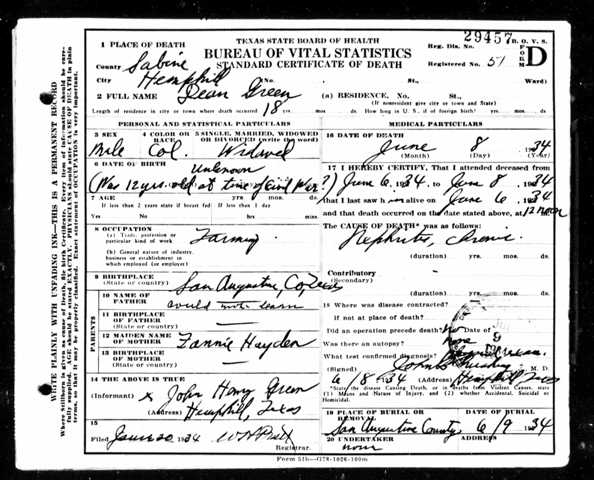 TEXAS STATE BOARD OF HEALTH
BUREAU OF VITAL STATISTICS
STANDARD CERTIFICATE OF DEATH
29457 B. O. V. S.
Reg. Dis. No.
Registered No. 51
FORM D
1 PLACE OF DEATH
County Sabine
City Hemphill (No. St.; Ward)
2 FULL NAME Dean Green (a) RESIDENCE, No. St.,
(If nonresident give city or town and State)
Length of residence in city or town where death occurred 18 yrs. mos. ds. How long in U. S., if of foreign birth? yrs. mos. ds.
PERSONAL AND STATISTICAL PARTICULARS
3 SEX
Male
4 COLOR OR RACE
Col.
5 SINGLE, MARRIED, WIDOWED
OR DIVORCED (write the word)
Widowed
6 DATE OF BIRTH
unknown
(Was 12 yrs. old at time of Civil War?)
7 AGE YRS. MOS. DS.
If less than 2 years state if breast fed If less than 1 day
Yes No hrs. min.
8 OCCUPATION
(a) Trade, profession or
particular kind of work
Farming
(b) General nature of industry,
business or establishment in
which employed (or employer)
9 BIRTHPLACE
(State or country) San Augustine Co Texas
PARENTS
10 NAME OF
FATHER could not learn
11 BIRTHPLACE
OF FATHER
(State or country)
12 MAIDEN NAME
OF MOTHER Fannie Hayden
13 BIRTHPLACE
OF MOTHER
(State or country)
14 THE ABOVE IS TRUE
(Informant) x John Henry Green
(Address) Hemphill, Texas
15
Filed 1934
Registrar.
MEDICAL PARTICULARS
16 DATE OF DEATH
June 8 1934
(Month) (Day) (Year)
17 I HEREBY CERTIFY, That I attended deceased from
June 6 1934, to June 8 1934
that I last saw alive on June 6 1934
and that death occurred on the date stated above, at 12 noon
The CAUSE OF DEATH*, was as follows:
Nephritis,
(duration) yrs. mos. ds.
Contributory
(Secondary)
(duration) yrs. mos. ds.
18 Where was disease contracted?
if not at place of death?
Did an operation precede death? no Date of
Was there an autopsy? none
What test confirmed diagnosis?
(Signed) M. D.
6/8 1934 (Address) Hemphill Texas
19 PLACE OF BURIAL OR
REMOVAL
San Augustine County
DATE OF BURIAL
6/9 1934
20 UNDERTAKER
none
ADDRESS
Form 51b—G78-1026-100m
WRITE PLAINLY WITH UNFADING INK—THIS IS A PERMANENT RECORD